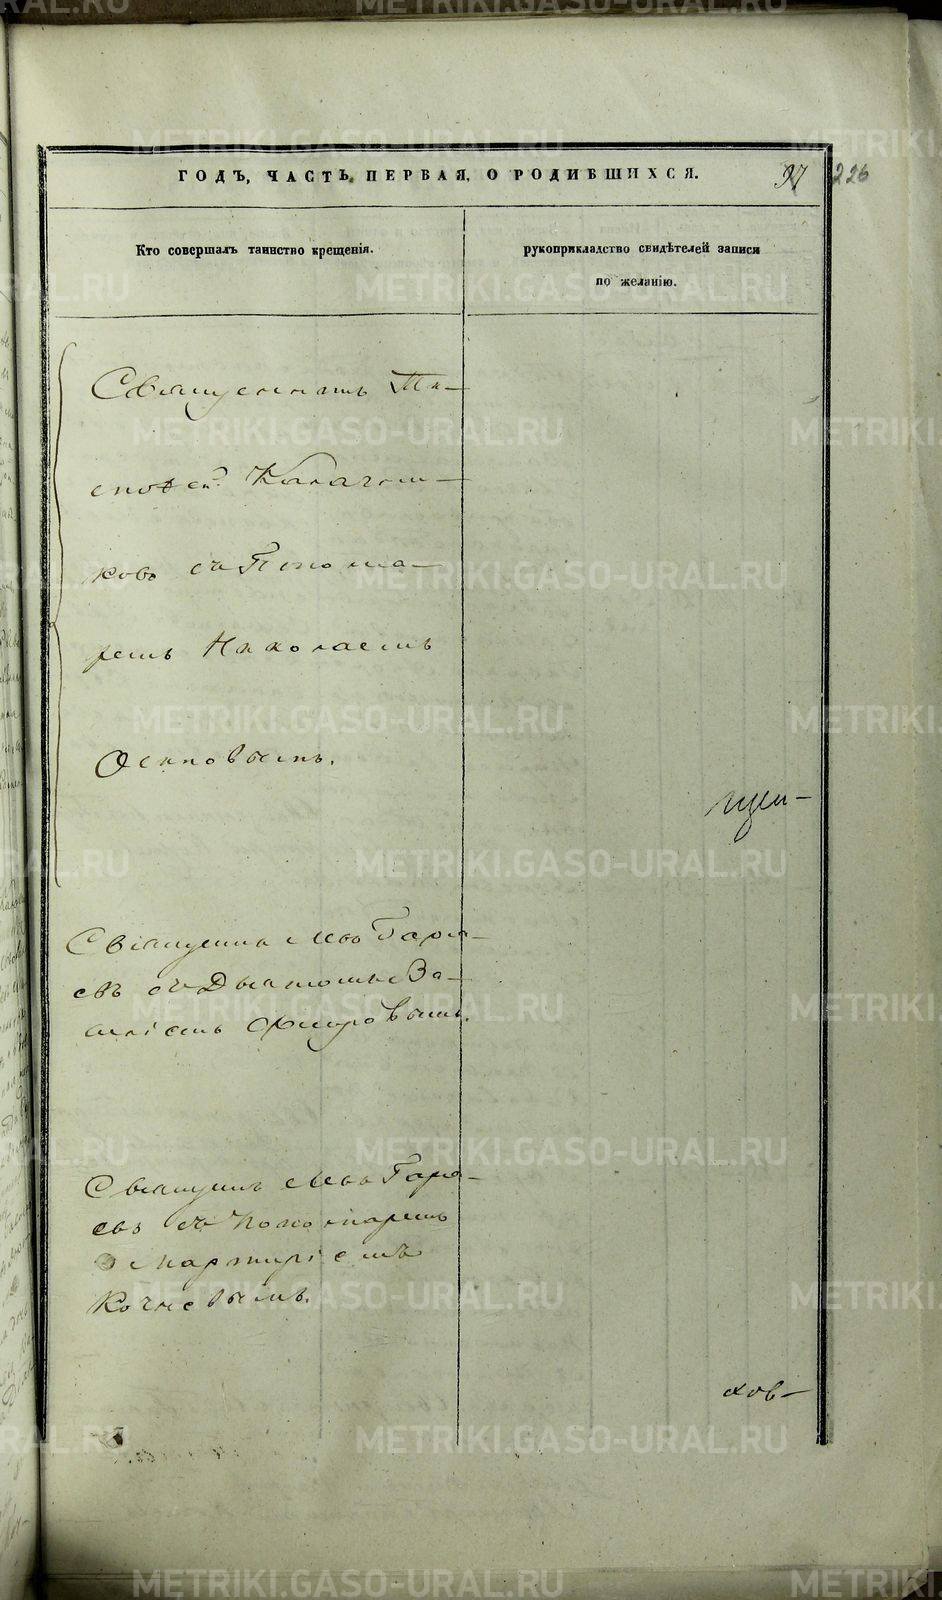 ГОДЪ, ЧАСТЬ ПЕРВАЯ, О РОДИВШИХСЯ. 97 226
Кто совершалъ таинство крещенія.
рукоприкладство свидѣтелей записи
по желанію.
Священникъ Ти-
мофей Калачни-
ковъ съ Понома-
ремъ Николаемъ
Осиповымъ.
Священникъ Левъ Гаря-
евъ съ Дьякономъ Ва-
силіемъ
Священникъ Левъ Гаря-
евъ съ Пономаремъ
Мартиріемъ
Кочневымъ.
хов-
METRIKI.GASO-URAL.RU